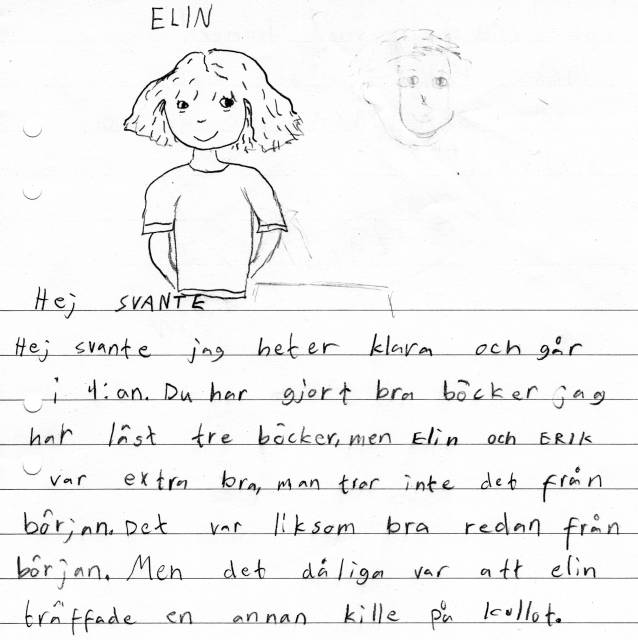 ELIN
Hej SVANTE
Hej svante jag heter klara och går
i 4:an. Du har gjort bra böcker jag
har läst tre böcker, men Elin och ERIK
var extra bra, man tror inte det från
början. Det var liksom bra redan från
början. Men det dåliga var att elin
träffade en annan kille på kullot.